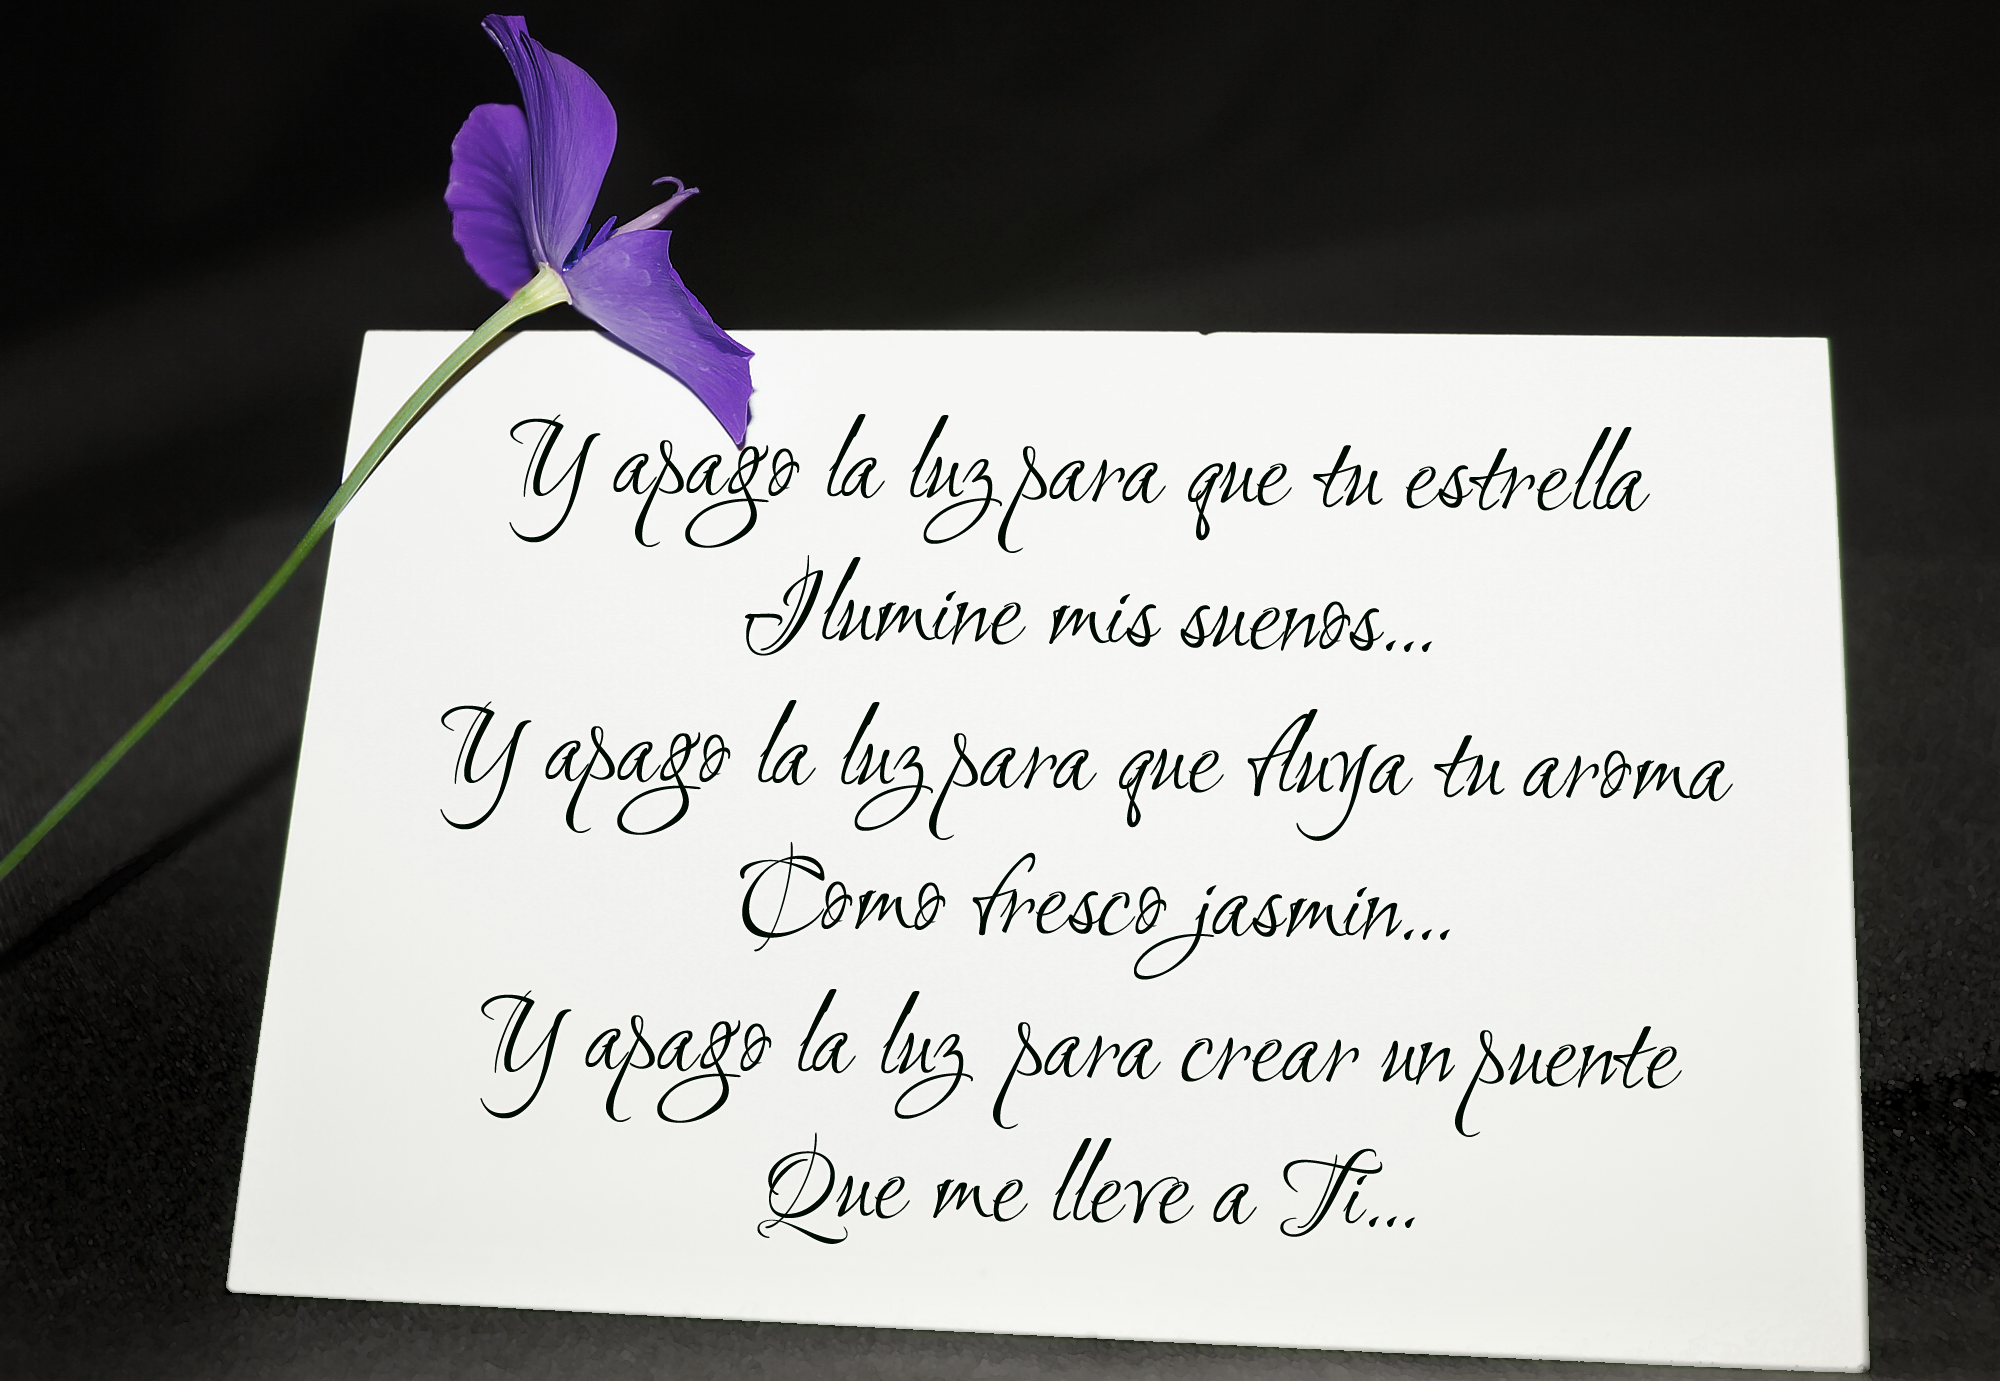 Y apago la luz para que tu estrella
Ilumine mis suenos...
Y apago la luz para que fluya tu aroma
Como fresco jasmin...
Y apago la luz para crear un puente
Que me lleve a Ti...